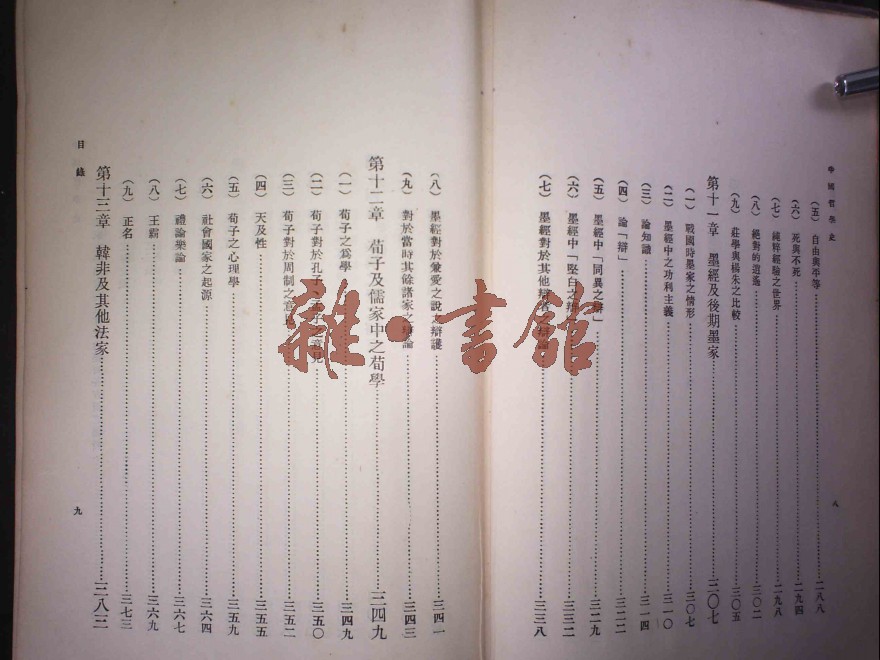 中國哲學史
(五) 自由與平等……二八八
(六) 死與不死……二九四
(七) 純粹經驗之世界……二九八
(八) 絕對的逍遙……三〇二
(九) 莊學與楊朱之比較……三〇五
第十一章 墨經及後期墨家……三〇七
(一) 戰國時墨家之情形……三〇七
(二) 墨經中之功利主義……三一〇
(三) 論知識……三一四
(四) 論「辯」……三二二
(五) 墨經中「同異之辯」……三二九
(六) 墨經中「堅白之辯」……三三二
(七) 墨經對於其他辯者之辯論……三三八
八
(八) 墨經對於兼愛之說之辯護……三四一
(九) 對於當時其餘諸家之辯論……三四三
第十二章 荀子及儒家中之荀學……三四九
(一) 荀子之為學……三四九
(二) 荀子對於孔子孟子之意見……三五〇
(三) 荀子對於周制之意見……三五二
(四) 天及性……三五五
(五) 荀子之心理學……三五九
(六) 社會國家之起源……三六四
(七) 禮論樂論……三六七
(八) 王霸……三六九
(九) 正名……三七三
第十三章 韓非及其他法家……三八三
目錄
九
雜·書館